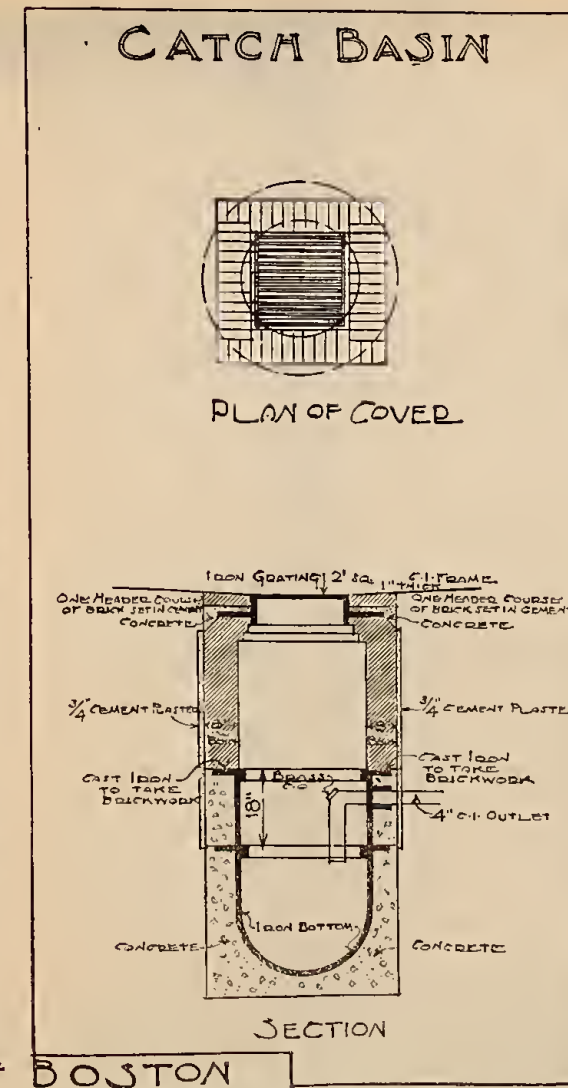 CATCH BASIN
PLAN OF COVER
IRON GRATING 2' SQ.
1" THICK
C.I. FRAME
ONE HEADER COURSE
OF BRICK SET IN CEMENT
CONCRETE
ONE HEADER COURSE
OF BRICK SET IN CEMENT
CONCRETE
3/4" CEMENT PLASTER
3/4" CEMENT PLASTE
CAST IRON
TO TAKE
BRICKWORK
BRASS
C.O.
18"
CAST IRON
TO TAKE
BRICKWORK
4" C.I. OUTLET
IRON BOTTOM
CONCRETE
CONCRETE
SECTION
BOSTON